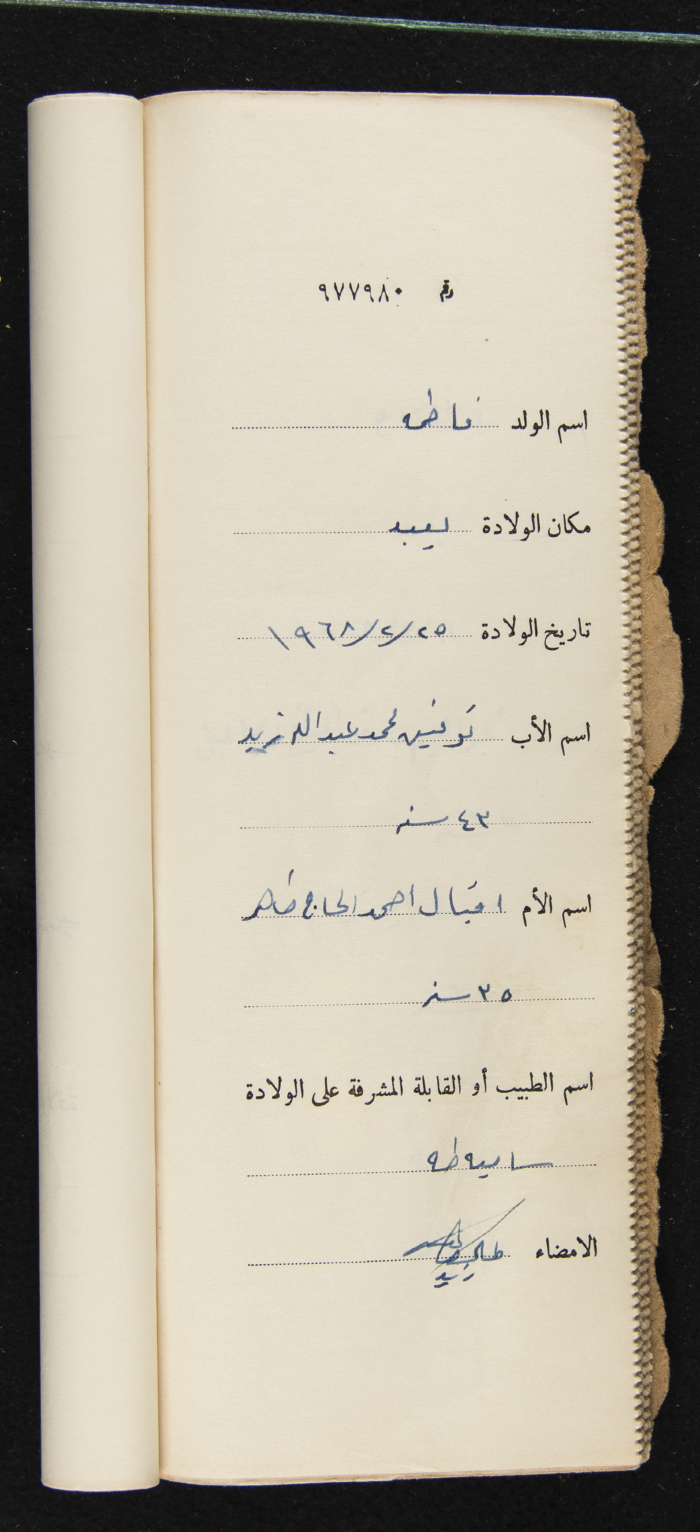 رقم ٩٧٧٩٨٠
اسم الولد فاطمه
مكان الولادة يعبد
تاريخ الولادة ٢٥/٢/١٩٦٨
اسم الأب توفيق محمد عبد الله زيد
٤٣ سنه
اسم الأم اقبال احمد الحاج طاهر
٣٥ سنه
اسم الطبيب أو القابلة المشرفة على الولادة
ساميه طه
الامضاء